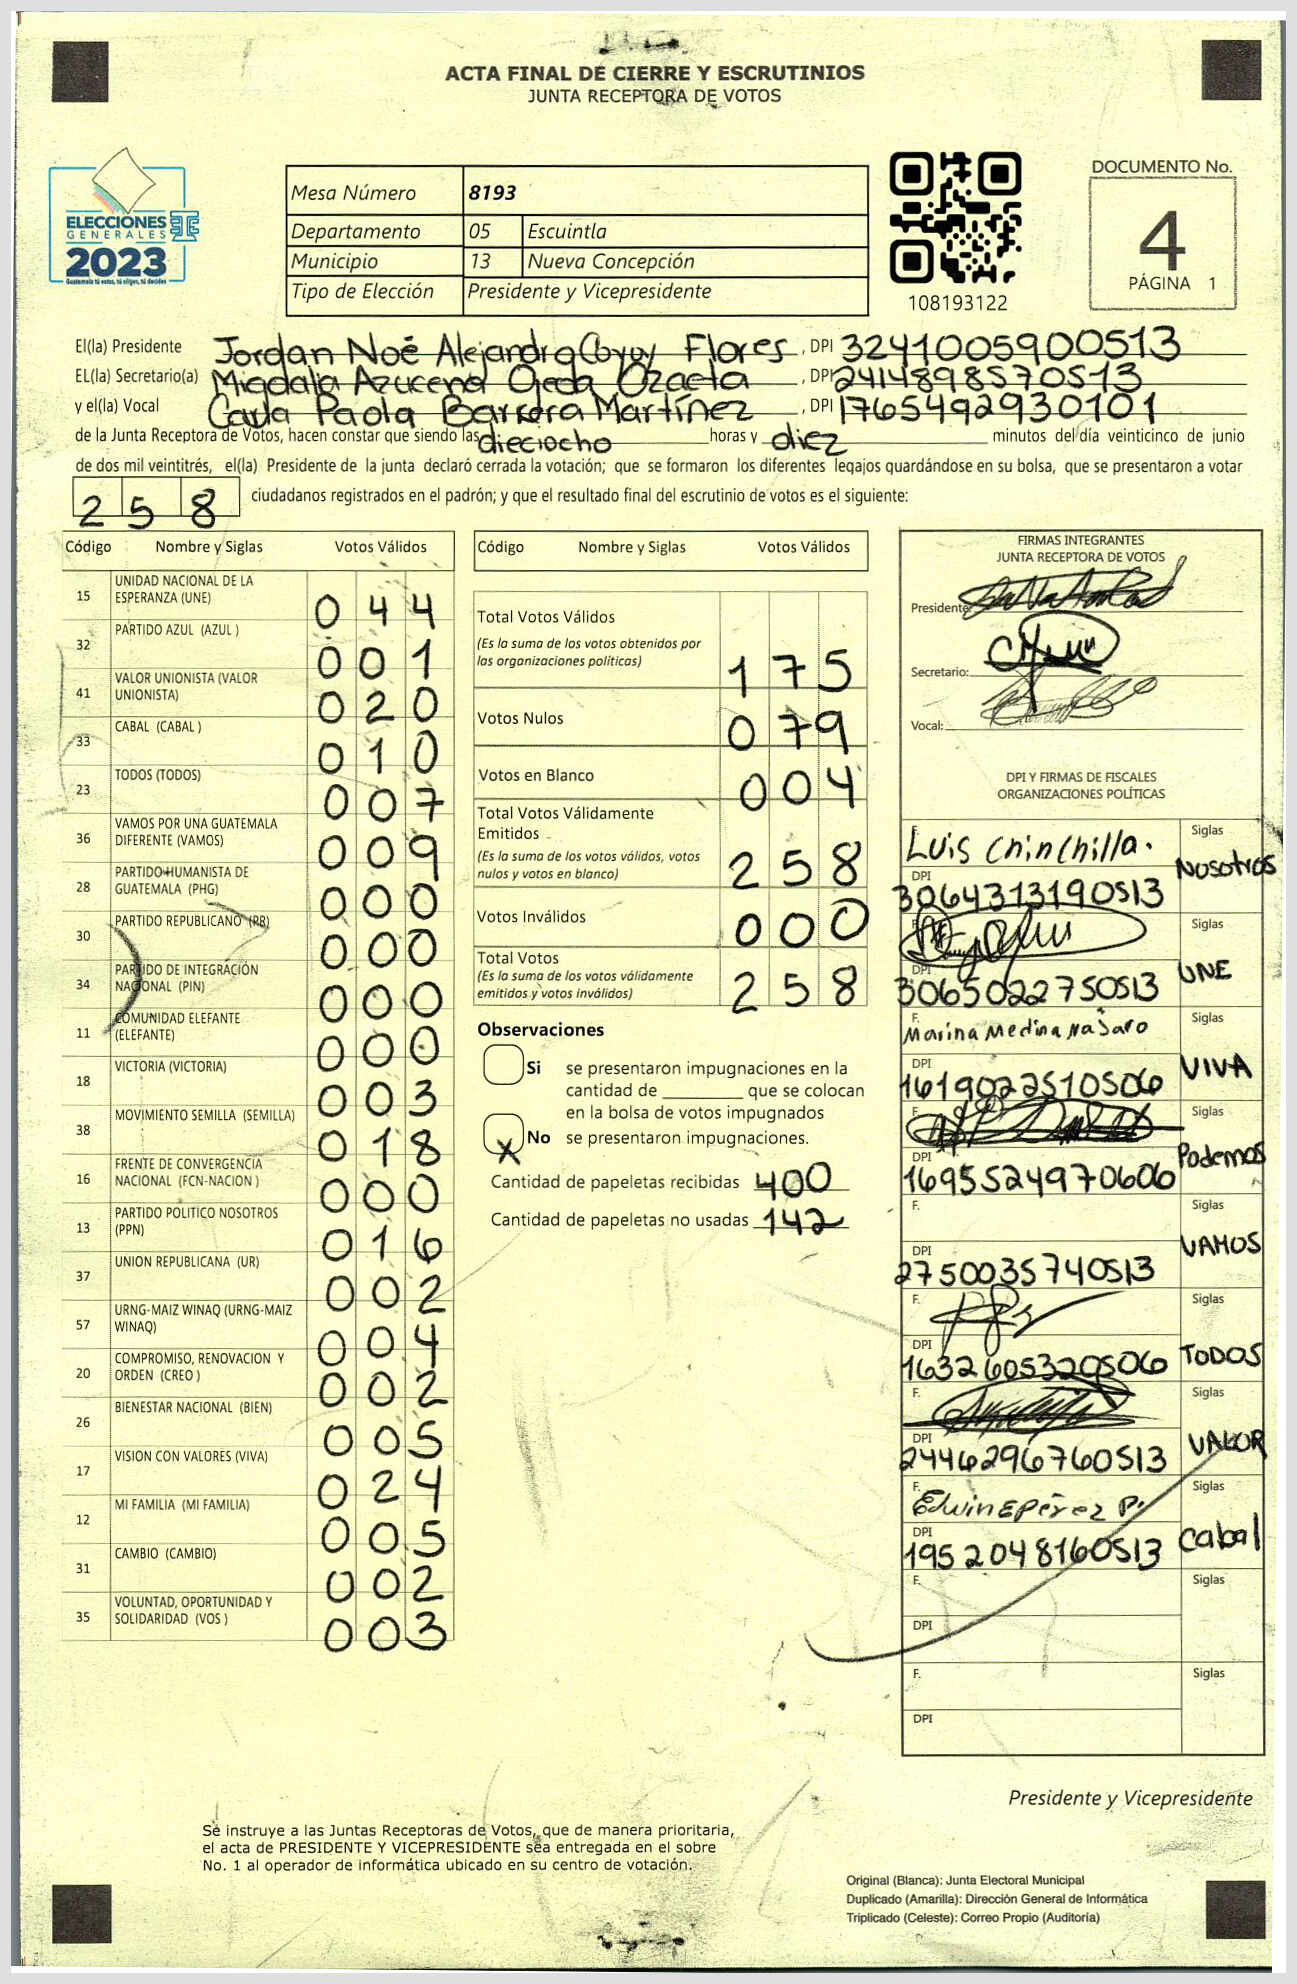 ACTA FINAL DE CIERRE Y ESCRUTINIOS
JUNTA RECEPTORA DE VOTOS
ELECCIONES
GENERALES
2023
Guatemala tú votas, tú eliges, tú decides
Mesa Número 8193
Departamento 05 Escuintla
Municipio 13 Nueva Concepción
Tipo de Elección Presidente y Vicepresidente
108193122
DOCUMENTO No.
4
PÁGINA 1
El(la) Presidente Jordan Noé Alejandro Coyoy Flores, DPI 3241005900513
EL(la) Secretario(a) Migdalia Azucena Ojeda Ozaeta, DPI 2414898570513
y el(la) Vocal Carla Paola Barrera Martínez, DPI 1765492930101
de la Junta Receptora de Votos, hacen constar que siendo las dieciocho horas y diez minutos del día veinticinco de junio
de dos mil veintitrés, el(la) Presidente de la junta declaró cerrada la votación; que se formaron los diferentes legajos guardándose en su bolsa, que se presentaron a votar
258 ciudadanos registrados en el padrón; y que el resultado final del escrutinio de votos es el siguiente:
Código Nombre y Siglas Votos Válidos
15 UNIDAD NACIONAL DE LA
ESPERANZA (UNE) 044
32 PARTIDO AZUL (AZUL ) 001
41 VALOR UNIONISTA (VALOR
UNIONISTA) 020
33 CABAL (CABAL ) 010
23 TODOS (TODOS) 007
36 VAMOS POR UNA GUATEMALA
DIFERENTE (VAMOS) 009
28 PARTIDO HUMANISTA DE
GUATEMALA (PHG) 000
30 PARTIDO REPUBLICANO (PR) 000
34 PARTIDO DE INTEGRACIÓN
NACIONAL (PIN) 000
11 COMUNIDAD ELEFANTE
(ELEFANTE) 000
18 VICTORIA (VICTORIA) 003
38 MOVIMIENTO SEMILLA (SEMILLA) 018
16 FRENTE DE CONVERGENCIA
NACIONAL (FCN-NACION ) 000
13 PARTIDO POLITICO NOSOTROS
(PPN) 016
37 UNION REPUBLICANA (UR) 002
57 URNG-MAIZ WINAQ (URNG-MAIZ
WINAQ) 004
20 COMPROMISO, RENOVACION Y
ORDEN (CREO ) 002
26 BIENESTAR NACIONAL (BIEN) 005
17 VISION CON VALORES (VIVA) 024
12 MI FAMILIA (MI FAMILIA) 005
31 CAMBIO (CAMBIO) 002
35 VOLUNTAD, OPORTUNIDAD Y
SOLIDARIDAD (VOS ) 003
Código Nombre y Siglas Votos Válidos
Total Votos Válidos
(Es la suma de los votos obtenidos por
las organizaciones políticas) 175
Votos Nulos 079
Votos en Blanco 004
Total Votos Válidamente
Emitidos
(Es la suma de los votos válidos, votos
nulos y votos en blanco) 258
Votos Inválidos 000
Total Votos
(Es la suma de los votos válidamente
emitidos y votos inválidos) 258
Observaciones
Si se presentaron impugnaciones en la
cantidad de ________ que se colocan
en la bolsa de votos impugnados
X No se presentaron impugnaciones.
Cantidad de papeletas recibidas 400
Cantidad de papeletas no usadas 142
FIRMAS INTEGRANTES
JUNTA RECEPTORA DE VOTOS
Presidente:
Secretario:
Vocal:
DPI Y FIRMAS DE FISCALES
ORGANIZACIONES POLÍTICAS
F. Luis Chinchilla. Siglas
DPI 3064313190513 NOSOtrOS
F. Siglas
DPI 3065022750513 UNE
F. Marina Medina Najaro Siglas
DPI 1619022510506 VIVA
F. Siglas
DPI 1695524970606 Podemos
F. Siglas
DPI 2750035740513 VAMOS
F. Siglas
DPI 1632605320506 TODOS
F. Siglas
DPI 2446296760513 VALOR
F. Edwin E Pérez P. Siglas
DPI 1952048160513 Cabal
F. Siglas
DPI
F. Siglas
DPI
Presidente y Vicepresidente
Se instruye a las Juntas Receptoras de Votos, que de manera prioritaria,
el acta de PRESIDENTE Y VICEPRESIDENTE sea entregada en el sobre
No. 1 al operador de informática ubicado en su centro de votación.
Original (Blanca): Junta Electoral Municipal
Duplicado (Amarilla): Dirección General de Informática
Triplicado (Celeste): Correo Propio (Auditoría)